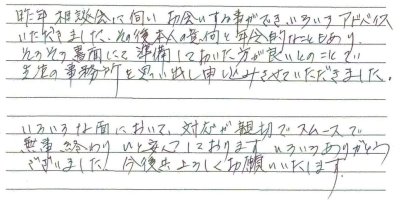 昨年相談会に伺いお会いする事ができいろいろアドバイス
いただきました。その後本人の意向と年令的なこともあり、
そろそろ書面にて準備しておいた方が良いとのことで
先生の事務所を思い出し申し込みさせていただきました。
いろいろな面において、対応が親切でスムースで
無事終わりホッと安心しております。いろいろありがとう
ございました。今後共よろしくお願いいたします。